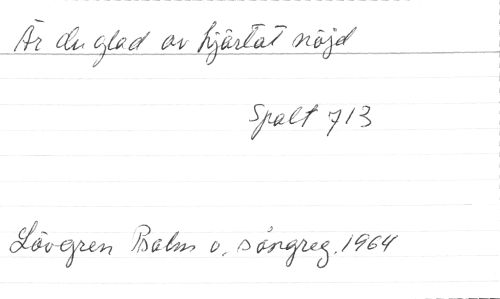 Är du glad av hjärtat nöjd
Spalt 713
Lövgren Psalm o. sångreg. 1964